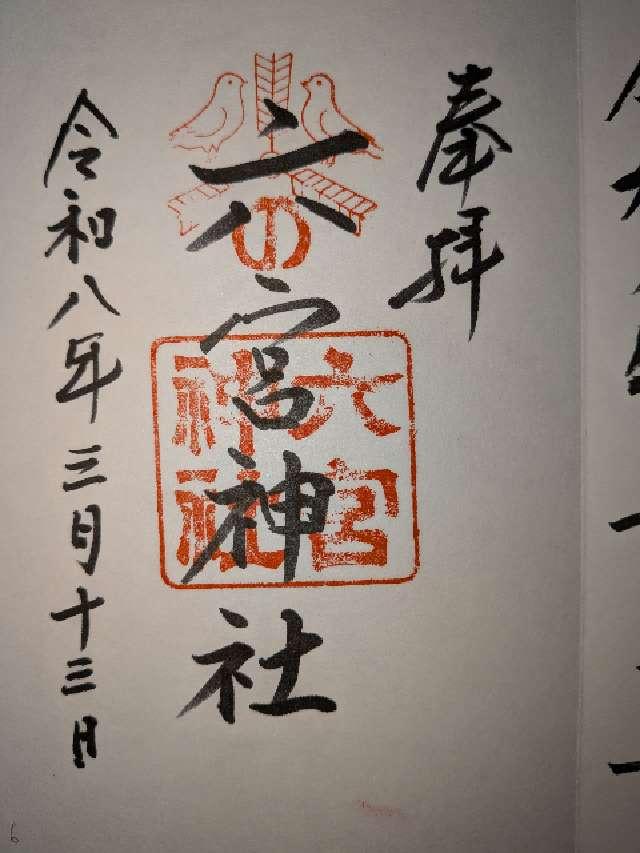 奉拝
六宮神社
六宮
神社
令和八年三月十三日
6